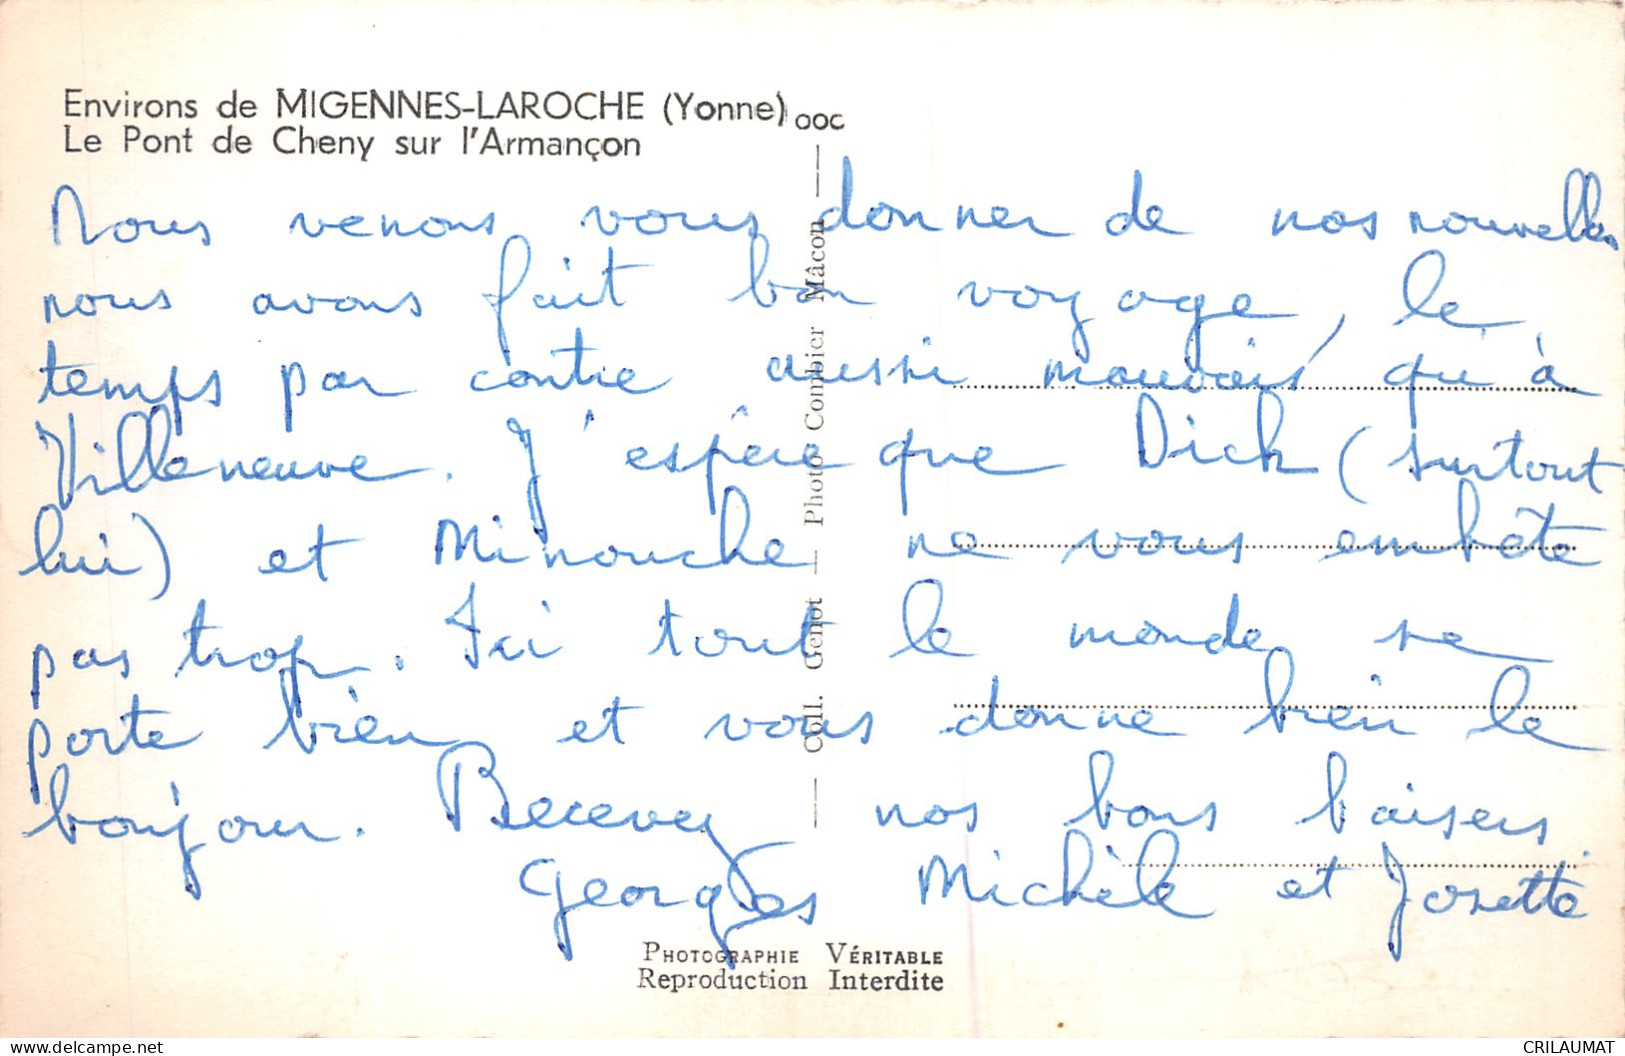 Environs de MIGENNES-LAROCHE (Yonne) OOC
Le Pont de Cheny sur l'Armançon
Nous venons vous donner de nos nouvelles
nous avons fait bon voyage, le
temps par contre aussi mauvais qu'à
Villeneuve. J'espère que Dick (surtout
lui) et Minouche ne vous embête
pas trop. Ici tout le monde se
porte bien et vous donne bien le
bonjour. Recevez nos bons baisers
Georges Michèle et Josette
Coll. Genot — Photo Combier Mâcon
PHOTOGRAPHIE VÉRITABLE
Reproduction Interdite
delcampe.net
CRILAUMAT